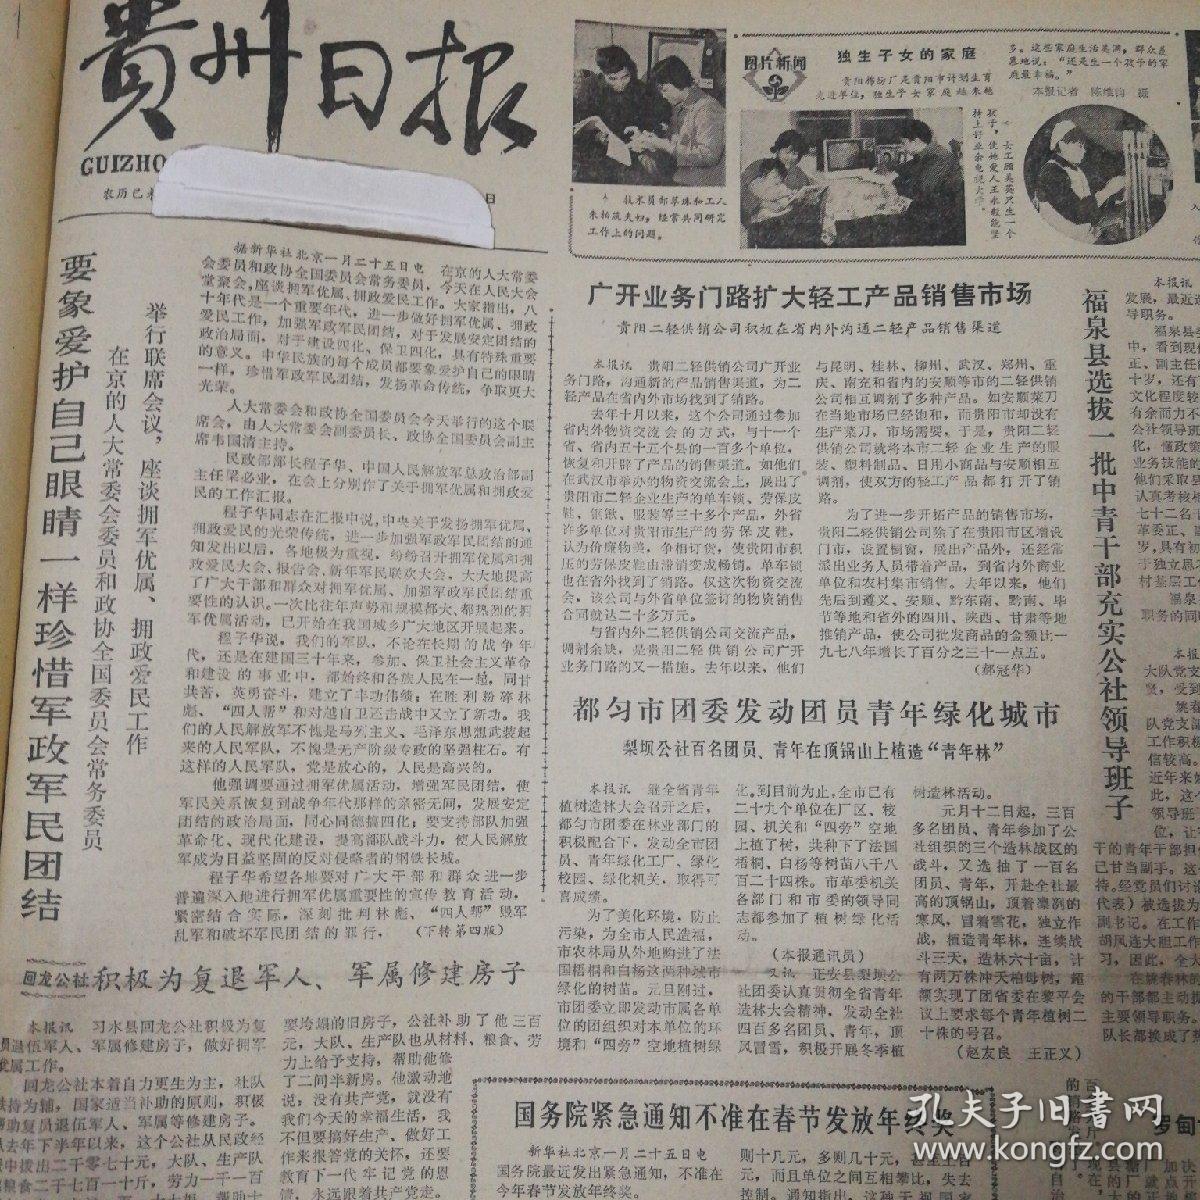 貴州日报
GUIZHO
农历己未
日
图片新闻
独生子女的家庭
贵阳棉纺厂是贵阳市计划生育
先进单位，独生子女家庭越来越
多。这些家庭生活美满，群众羡
慕地说：“还是生一个孩子的家
庭最幸福。”
本报记者
技术员郎翠珠和工人
朱柏筑夫妇，经常共同研究
工作上的问题。
要象爱护自己眼睛一样珍惜军政军民团结
在京的人大常委会委员和政协全国委员会常务委员
举行联席会议，座谈拥军优属、拥政爱民工作
据新华社北京一月二十五日电　在京的人大常委
会委员和政协全国委员会常务委员，今天在人民大会
堂聚会，座谈拥军优属、拥政爱民工作。大家指出，八
十年代是一个重要年代，进一步做好拥军优属、拥政
爱民工作，加强军政军民团结，对于发展安定团结的
政治局面，对于建设四化、保卫四化，具有特殊重要
的意义。中华民族的每个成员都要象爱护自己的眼睛
一样，珍惜军政军民团结，发扬革命传统，争取更大
光荣。
人大常委会和政协全国委员会今天举行的这个联
席会，由人大常委会副委员长、政协全国委员会副主
席韦国清主持。
民政部部长程子华、中国人民解放军总政治部副
主任梁必业，在会上分别作了关于拥军优属和拥政爱
民的工作汇报。
程子华同志在汇报中说，中央关于发扬拥军优属、
拥政爱民的光荣传统，进一步加强军政军民团结的通
知发出以后，各地极为重视，纷纷召开拥军优属和拥
政爱民大会、报告会、新年军民联欢大会，大大地提高
了广大干部和群众对拥军优属、加强军政军民团结重
要性的认识。一次比往年声势和规模都大、都热烈的拥
军优属活动，已开始在我国城乡广大地区开展起来。
程子华说，我们的军队，不论在长期的战争年
代，还是在建国三十年来，参加、保卫社会主义革命
和建设的事业中，都始终和各族人民在一起，同甘
共苦，英勇奋斗，建立了丰功伟绩；在胜利粉碎林
彪、“四人帮”和对越自卫还击战中又立了新功。我
们的人民解放军不愧是马列主义、毛泽东思想武装起
来的人民军队，不愧是无产阶级专政的坚强柱石。有
这样的人民军队，党是放心的，人民是高兴的。
他强调要通过拥军优属活动，增强军民团结，使
军民关系恢复到战争年代那样的亲密无间，发展安定
团结的政治局面，同心同德搞四化；要支持部队加强
革命化、现代化建设，提高部队战斗力，使人民解放
军成为日益坚固的反对侵略者的钢铁长城。
程子华希望各地要对广大干部和群众进一步
普遍深入地进行拥军优属重要性的宣传教育活动，
紧密结合实际，深刻批判林彪、“四人帮”毁军
乱军和破坏军民团结的罪行，（下转第四版）
广开业务门路扩大轻工产品销售市场
贵阳二轻供销公司积极在省内外沟通二轻产品销售渠道
本报讯　贵阳二轻供销公司广开业
务门路，沟通新的产品销售渠道，为二
轻产品在省内外市场找到了销路。
去年十月以来，这个公司通过参加
省内外物资交流会的方式，与十一个
省、省内五十五个县的一百多个单位，
恢复和开辟了产品的销售渠道。如他们
在武汉市举办的物资交流会上，展出了
贵阳市二轻企业生产的单车锁、劳保皮
鞋、钢锹、服装等三十多个产品，外省
许多单位对贵阳市生产的劳保皮鞋，
认为价廉物美，争相订货，使贵阳市积
压的劳保皮鞋由滞销变成畅销。单车锁
也在省外找到了销路。仅这次物资交流
会，该公司与外省单位签订的物资销售
合同就达二十多万元。
与省内外二轻供销公司交流产品，
调剂余缺，是贵阳二轻供销公司广开
业务门路的又一措施。去年以来，他们
与昆明、桂林、柳州、武汉、郑州、重
庆、南充和省内的安顺等市的二轻供销
公司相互调剂了多种产品。如安顺菜刀
在当地市场已经饱和，而贵阳市却没有
生产菜刀，市场需要，于是，贵阳二轻
供销公司就将本市二轻企业生产的服
装、塑料制品、日用小商品与安顺相互
调剂，使双方的轻工产品都打开了销
路。
为了进一步开拓产品的销售市场，
贵阳二轻供销公司除了在贵阳市区增设
门市，设置橱窗，展出产品外，还经常
派出业务人员带着产品，到省内外商业
单位和农村集市销售。去年以来，他们
先后到遵义、安顺、黔东南、黔南、毕
节等地和省外的四川、陕西、甘肃等地
推销产品，使公司批发商品的金额比一
九七八年增长了百分之三十一点五。
（郝冠华）
福泉县选拔一批中青干部充实公社领导班子
都匀市团委发动团员青年绿化城市
梨坝公社百名团员、青年在顶锅山上植造“青年林”
本报讯　继全省青年
植树造林大会召开之后，
都匀市团委在林业部门的
积极配合下，发动全市团
员、青年绿化工厂、绿化
校园、绿化机关，取得可
喜成绩。
为了美化环境，防止
污染，为全市人民造福，
市农林局从外地购进了法
国梧桐和白杨这两种城市
绿化的树苗。元旦刚过，
市团委立即发动市属各单
位的团组织对本单位的环
境和“四旁”空地植树绿
化。到目前为止，全市已有
二十九个单位在厂区、校
园、机关和“四旁”空地
上植了树，共种下了法国
梧桐、白杨等树苗八千八
百二十四株。市革委机关
各部门和市委的领导同
志都参加了植树绿化活
动。
（本报通讯员）
又讯　正安县梨坝公
社团委认真贯彻全省青年
造林大会精神，发动全社
四百多名团员、青年，顶
风冒雪，积极开展冬季植
树造林活动。
元月十二日起，三百
多名团员、青年参加了公
社组织的三个造林战区的
战斗，又选抽了一百名
团员、青年，开赴全社最
高的顶锅山，顶着凛冽的
寒风，冒着雪花，独立作
战，植造青年林，连续战
斗三天，造林六十亩，计
有两万株冲天柏母树，超
额实现了团省委在黎平会
议上要求每个青年植树二
十株的号召。
（赵友良　王正义）
回龙公社积极为复退军人、军属修建房子
本报讯　习水县回龙公社积极为复
员退伍军人、军属修建房子，做好拥军
优属工作。
回龙公社本着自力更生为主，社队
扶持为辅，国家适当补助的原则，积极
帮助复员退伍军人、军属等修建房子。
从去年下半年以来，这个公社从民政经
费中拨出二千零七十元，大队、生产队
粮食二千七百一十斤，劳力一千一百
要垮塌的旧房子，公社补助了他三百
元，大队、生产队也从材料、粮食、劳
力上给予支持，帮助他修
了二间半新房。他激动地
说，没有共产党，就没有
我们今天的幸福生活，我
不但要搞好生产、做好工
作来报答党的关怀，还要
教育下一代牢记党的恩
情，永远跟着共产党走。
国务院紧急通知不准在春节发放年终奖
新华社北京一月二十五日电
国务院最近发出紧急通知，不准在
今年春节发放年终奖。
则十几元，多则几十元，甚至上百
元，而且单位之间互相攀比，失去
控制。通知指出，这种无视国家
罗甸
孔夫子旧书网
www.kongfz.com